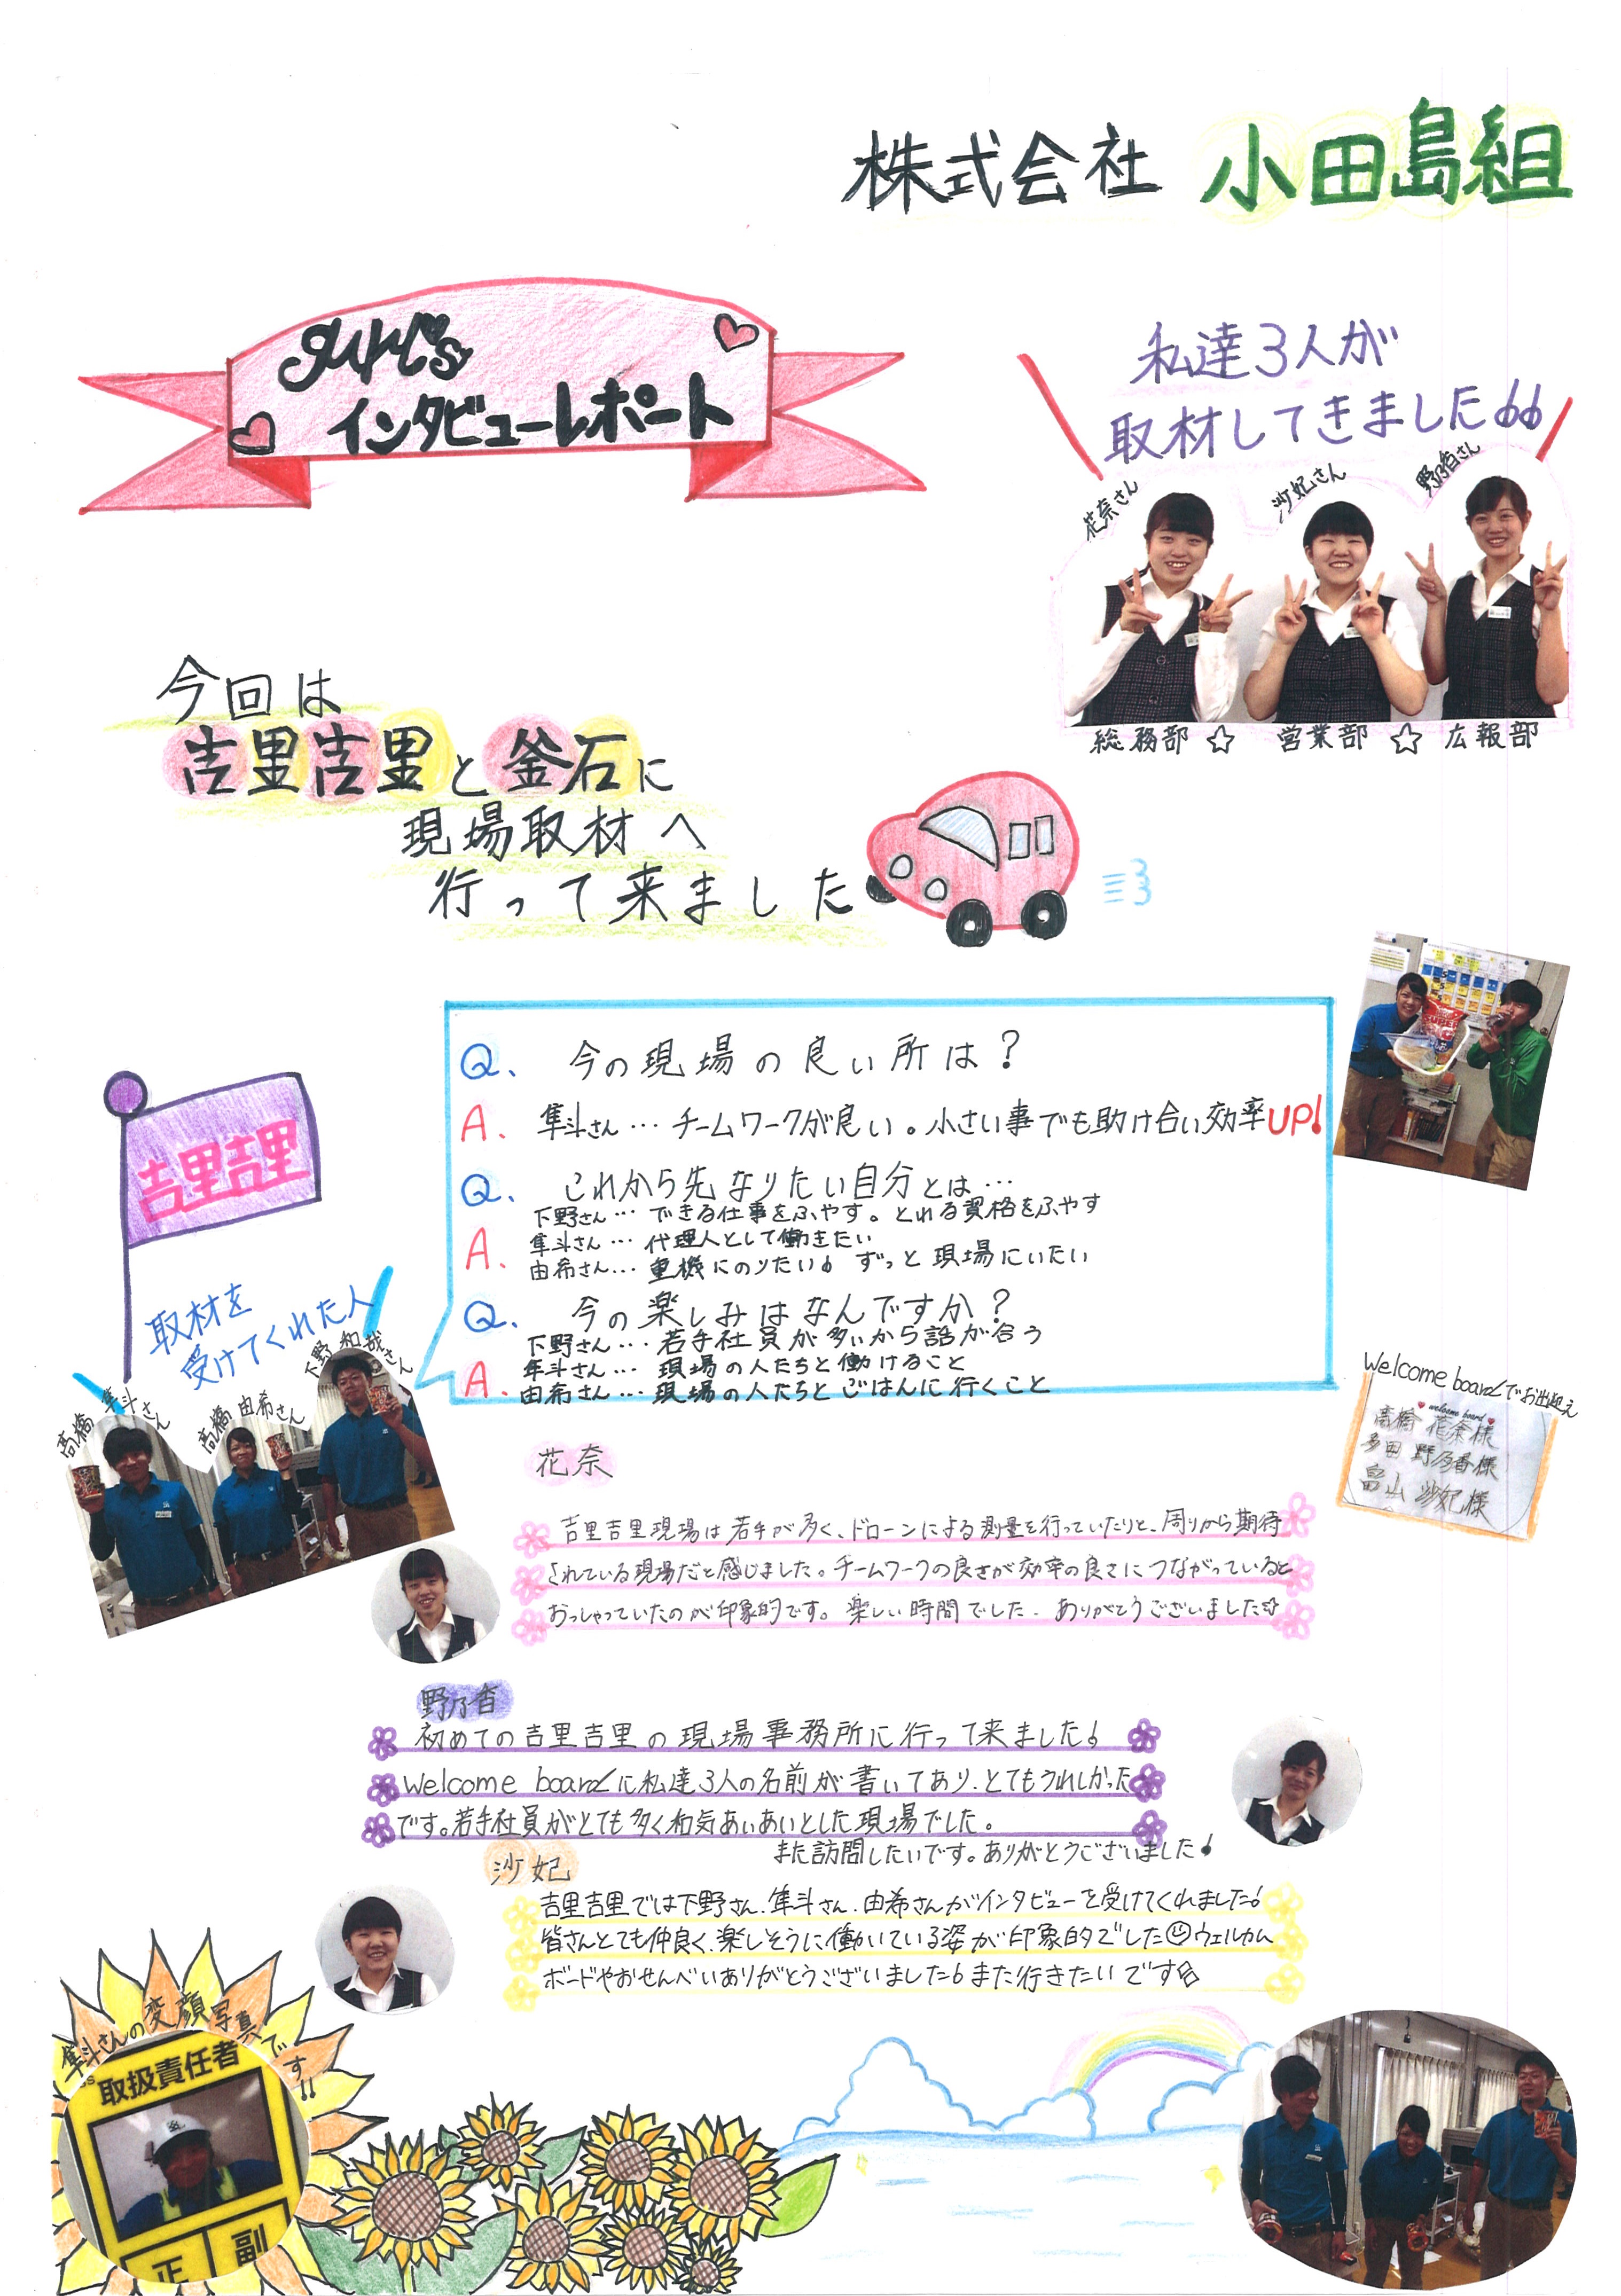 株式会社 小田島組
girl's
インタビューレポート
私達3人が
取材してきました
花奈さん
沙妃さん
野乃香さん
総務部 ☆ 営業部 ☆ 広報部
今回は
吉里吉里と釜石に
現場取材へ
行って来ました
Q、 今の現場の良い所は？
A. 隼斗さん…チームワークが良い。小さい事でも助け合い効率UP!
Q、 これから先なりたい自分とは…
下野さん…できる仕事をふやす。とれる資格をふやす
A. 隼斗さん…代理人として働きたい
由希さん…重機にのりたい♪ ずっと現場にいたい
Q. 今の楽しみはなんですか？
下野さん…若手社員が多いから話が合う
隼斗さん…現場の人たちと働けること
A. 由希さん…現場の人たちとごはんに行くこと
吉里吉里
取材を
受けてくれた人
高橋 隼斗さん
高橋 由希さん
下野 和哉さん
Welcome boardでお出迎え
welcome board
高橋 花奈様
多田 野乃香様
畠山 沙妃様
花奈
吉里吉里現場は若手が多く、ドローンによる測量を行っていたりと、周りから期待
されている現場だと感じました。チームワークの良さが効率の良さにつながっていると
おっしゃっていたのが印象的です。楽しい時間でした. ありがとうございました☆
野乃香
初めての吉里吉里の現場事務所に行って来ました♪
Welcome boardに私達3人の名前が書いてあり、とてもうれしかった
です。若手社員がとても多く和気あいあいとした現場でした。
また訪問したいです。ありがとうございました♪
沙妃
吉里吉里では下野さん、隼斗さん、由希さんがインタビューを受けてくれました!
皆さんとても仲良く、楽しそうに働いている姿が印象的でした☺ウェルカム
ボードやおせんべいありがとうございました♪また行きたいです
隼斗さんの変顔写真です!!
取扱責任者
正 副